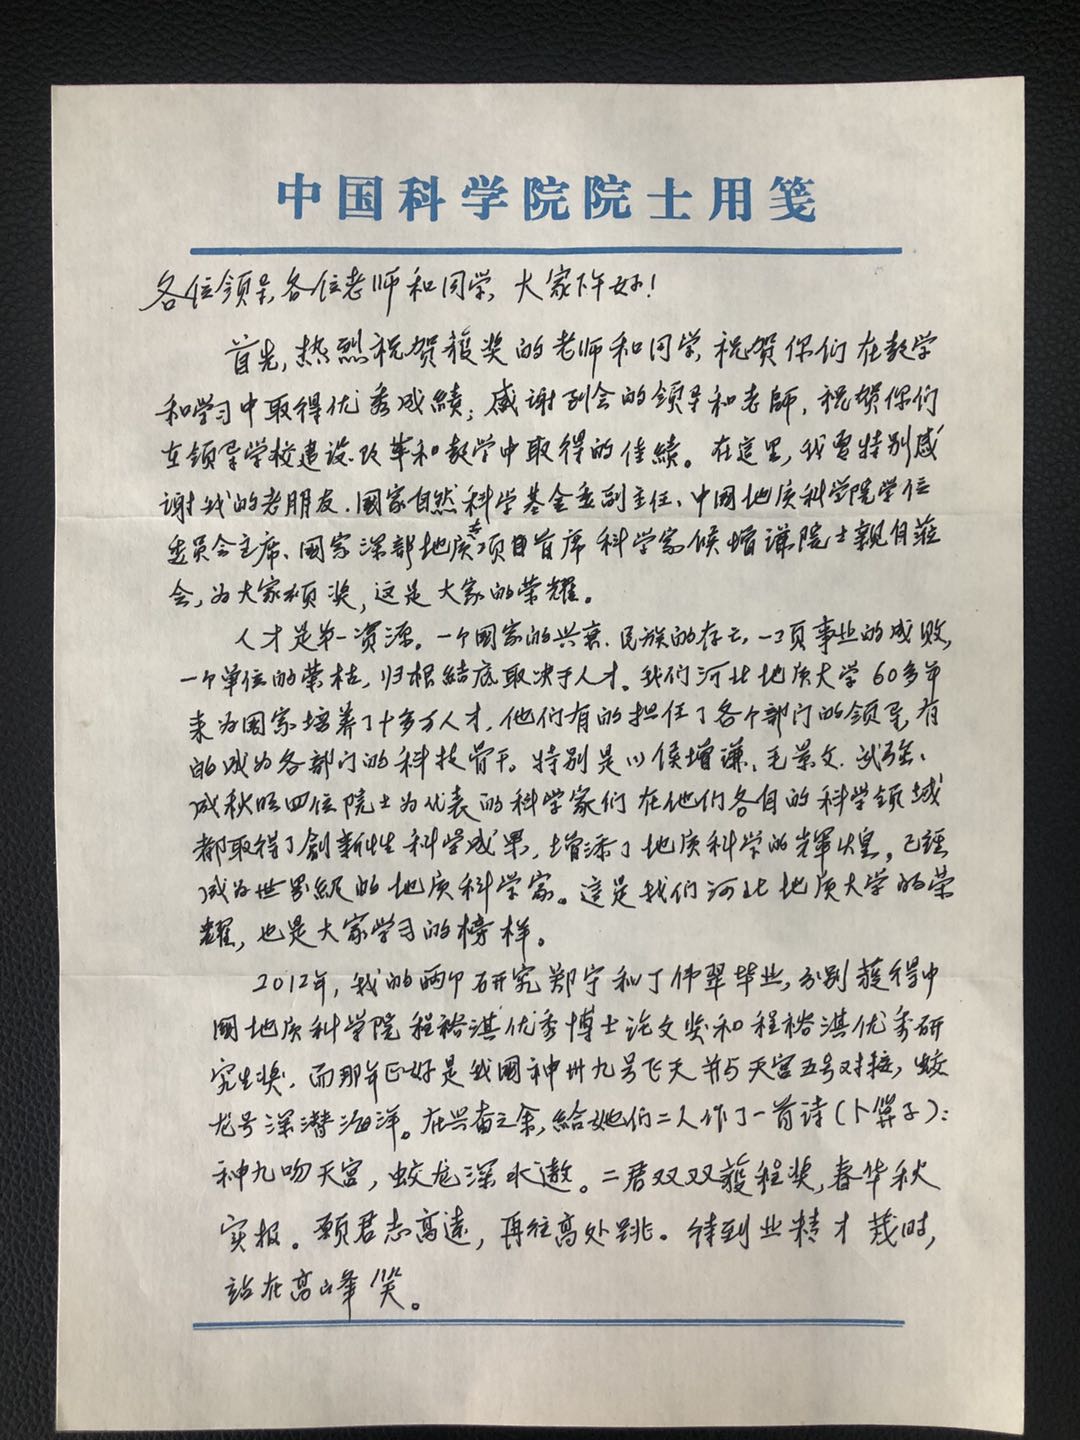 中国科学院院士用笺
各位领导,各位老师和同学,大家下午好!
首先,热烈祝贺获奖的老师和同学,祝贺你们在教学
和学习中取得优秀成績;感谢到会的领导和老師,祝贺你们
在领导学校建设、改革和教学中取得的佳績。在这里,我要特别感
谢我的老朋友、國家自然科学基金委副主任、中國地质科学院学位
委员会主席、國家深部地质专项目首席科学家侯增谦院士親自蒞
会,为大家颁奖,这是大家的荣耀。
人才是第一资源。一个國家的兴衰、民族的存亡、一项事业的成败,
一个单位的荣枯,归根結底取决于人才。我们河北地质大学60多年
来为國家培养了十多万人才,他们有的担任了各个部门的领导,有
的成为各部门的科技骨干。特别是以侯增谦、毛景文、武强、
成秋明四位院士为代表的科学家们在他们各自的科学领域
都取得了創新性科学成果,增添了地质科学的辉煌,已經
成为世界級的地质科学家。這是我们河北地质大学的荣
耀,也是大家学习的榜样。
2012年,我的两个研究郑宁和丁伟翠毕业,分别獲得中
國地质科学院程裕淇优秀博士论文奖和程裕淇优秀研
究生奖,而那年正好是我國神州九号飞天并与天宫五号对接,蛟
龙号深潜海洋。在兴奋之余,給她们二人作了一首诗(卜算子):
神九吻天宫,蛟龙深水遨。二君双双獲程奖,春华秋
实报。願君志高遠,再往高处跳。待到业精才茂时,
站在高峰笑。